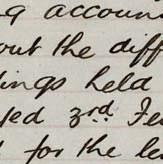 g accoun
out the diff
dings held
ted 3rd Fe
for the le